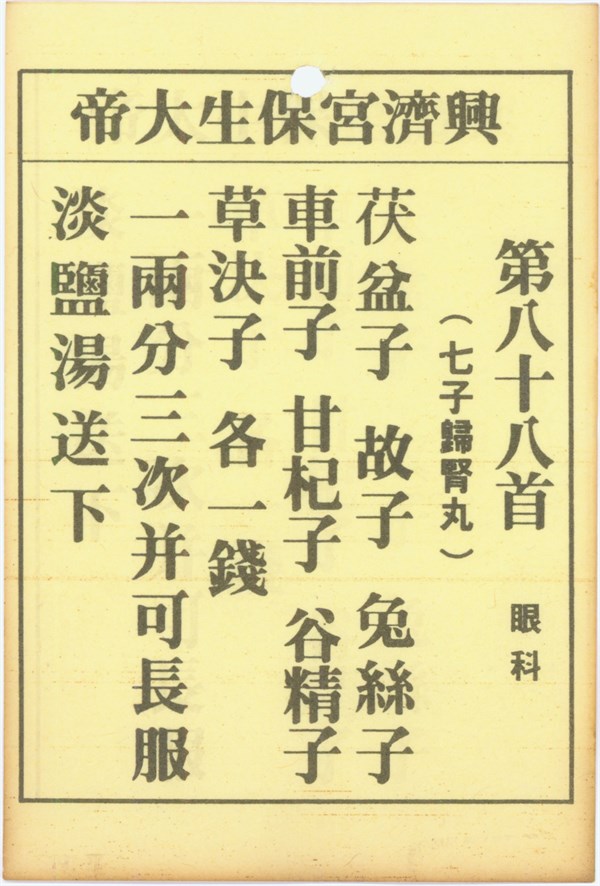 興濟宮保生大帝
第八十八首 眼科
(七子歸腎丸)
茯盆子 故子 兔絲子
車前子 甘杞子 谷精子
草決子 各一錢
一兩分三次并可長服
淡鹽湯送下